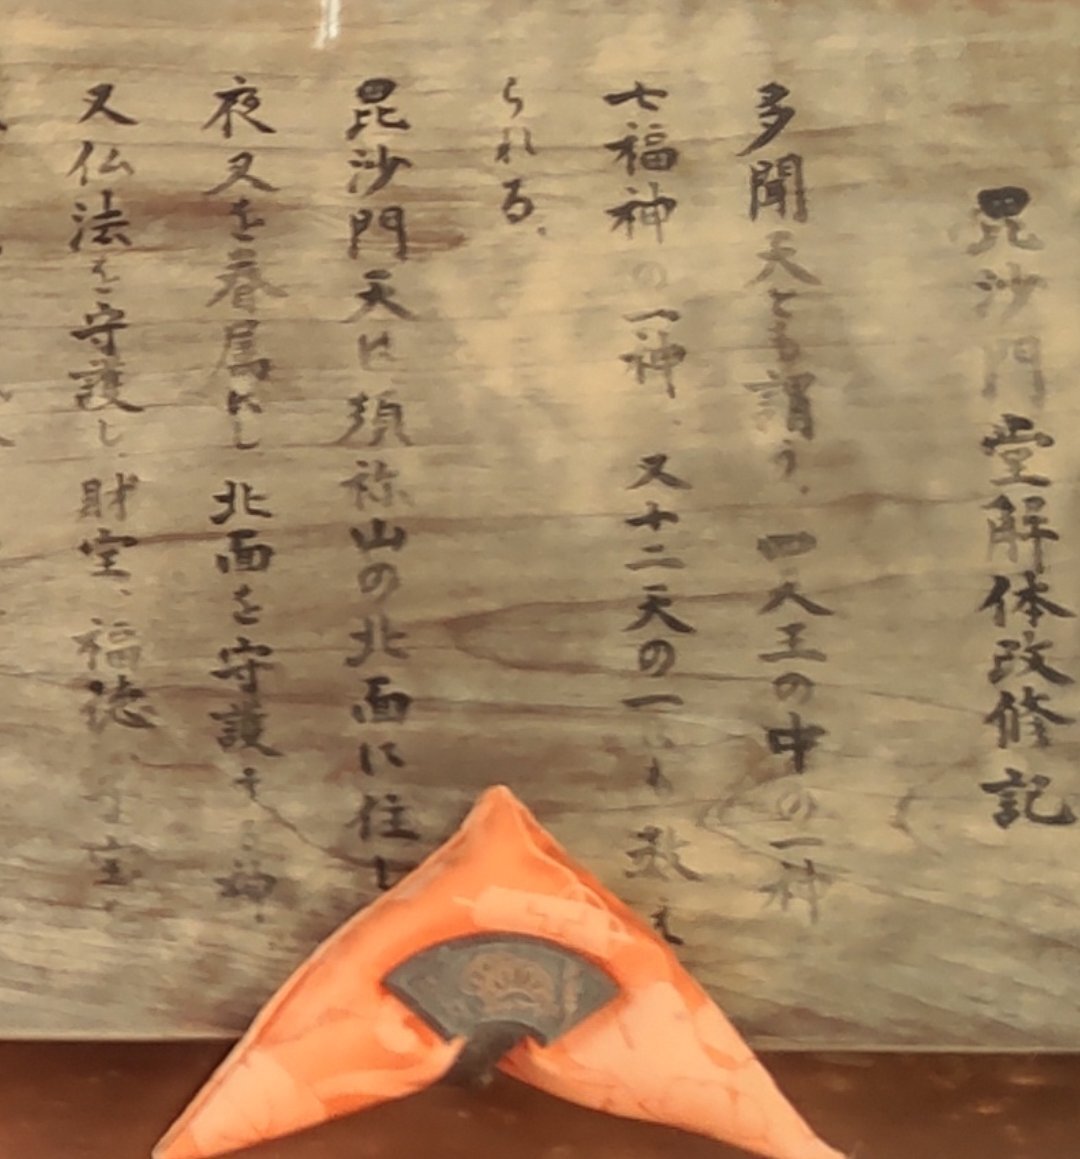 毘沙門堂解体改修記
多聞天とも謂う、四天王の中の一神
七福神の一神、又十二天の一にも数え
られる。
毘沙門天は須祢山の北面に住し
夜叉を眷属にし北面を守護する神、
又仏法を守護し、財宝、福徳